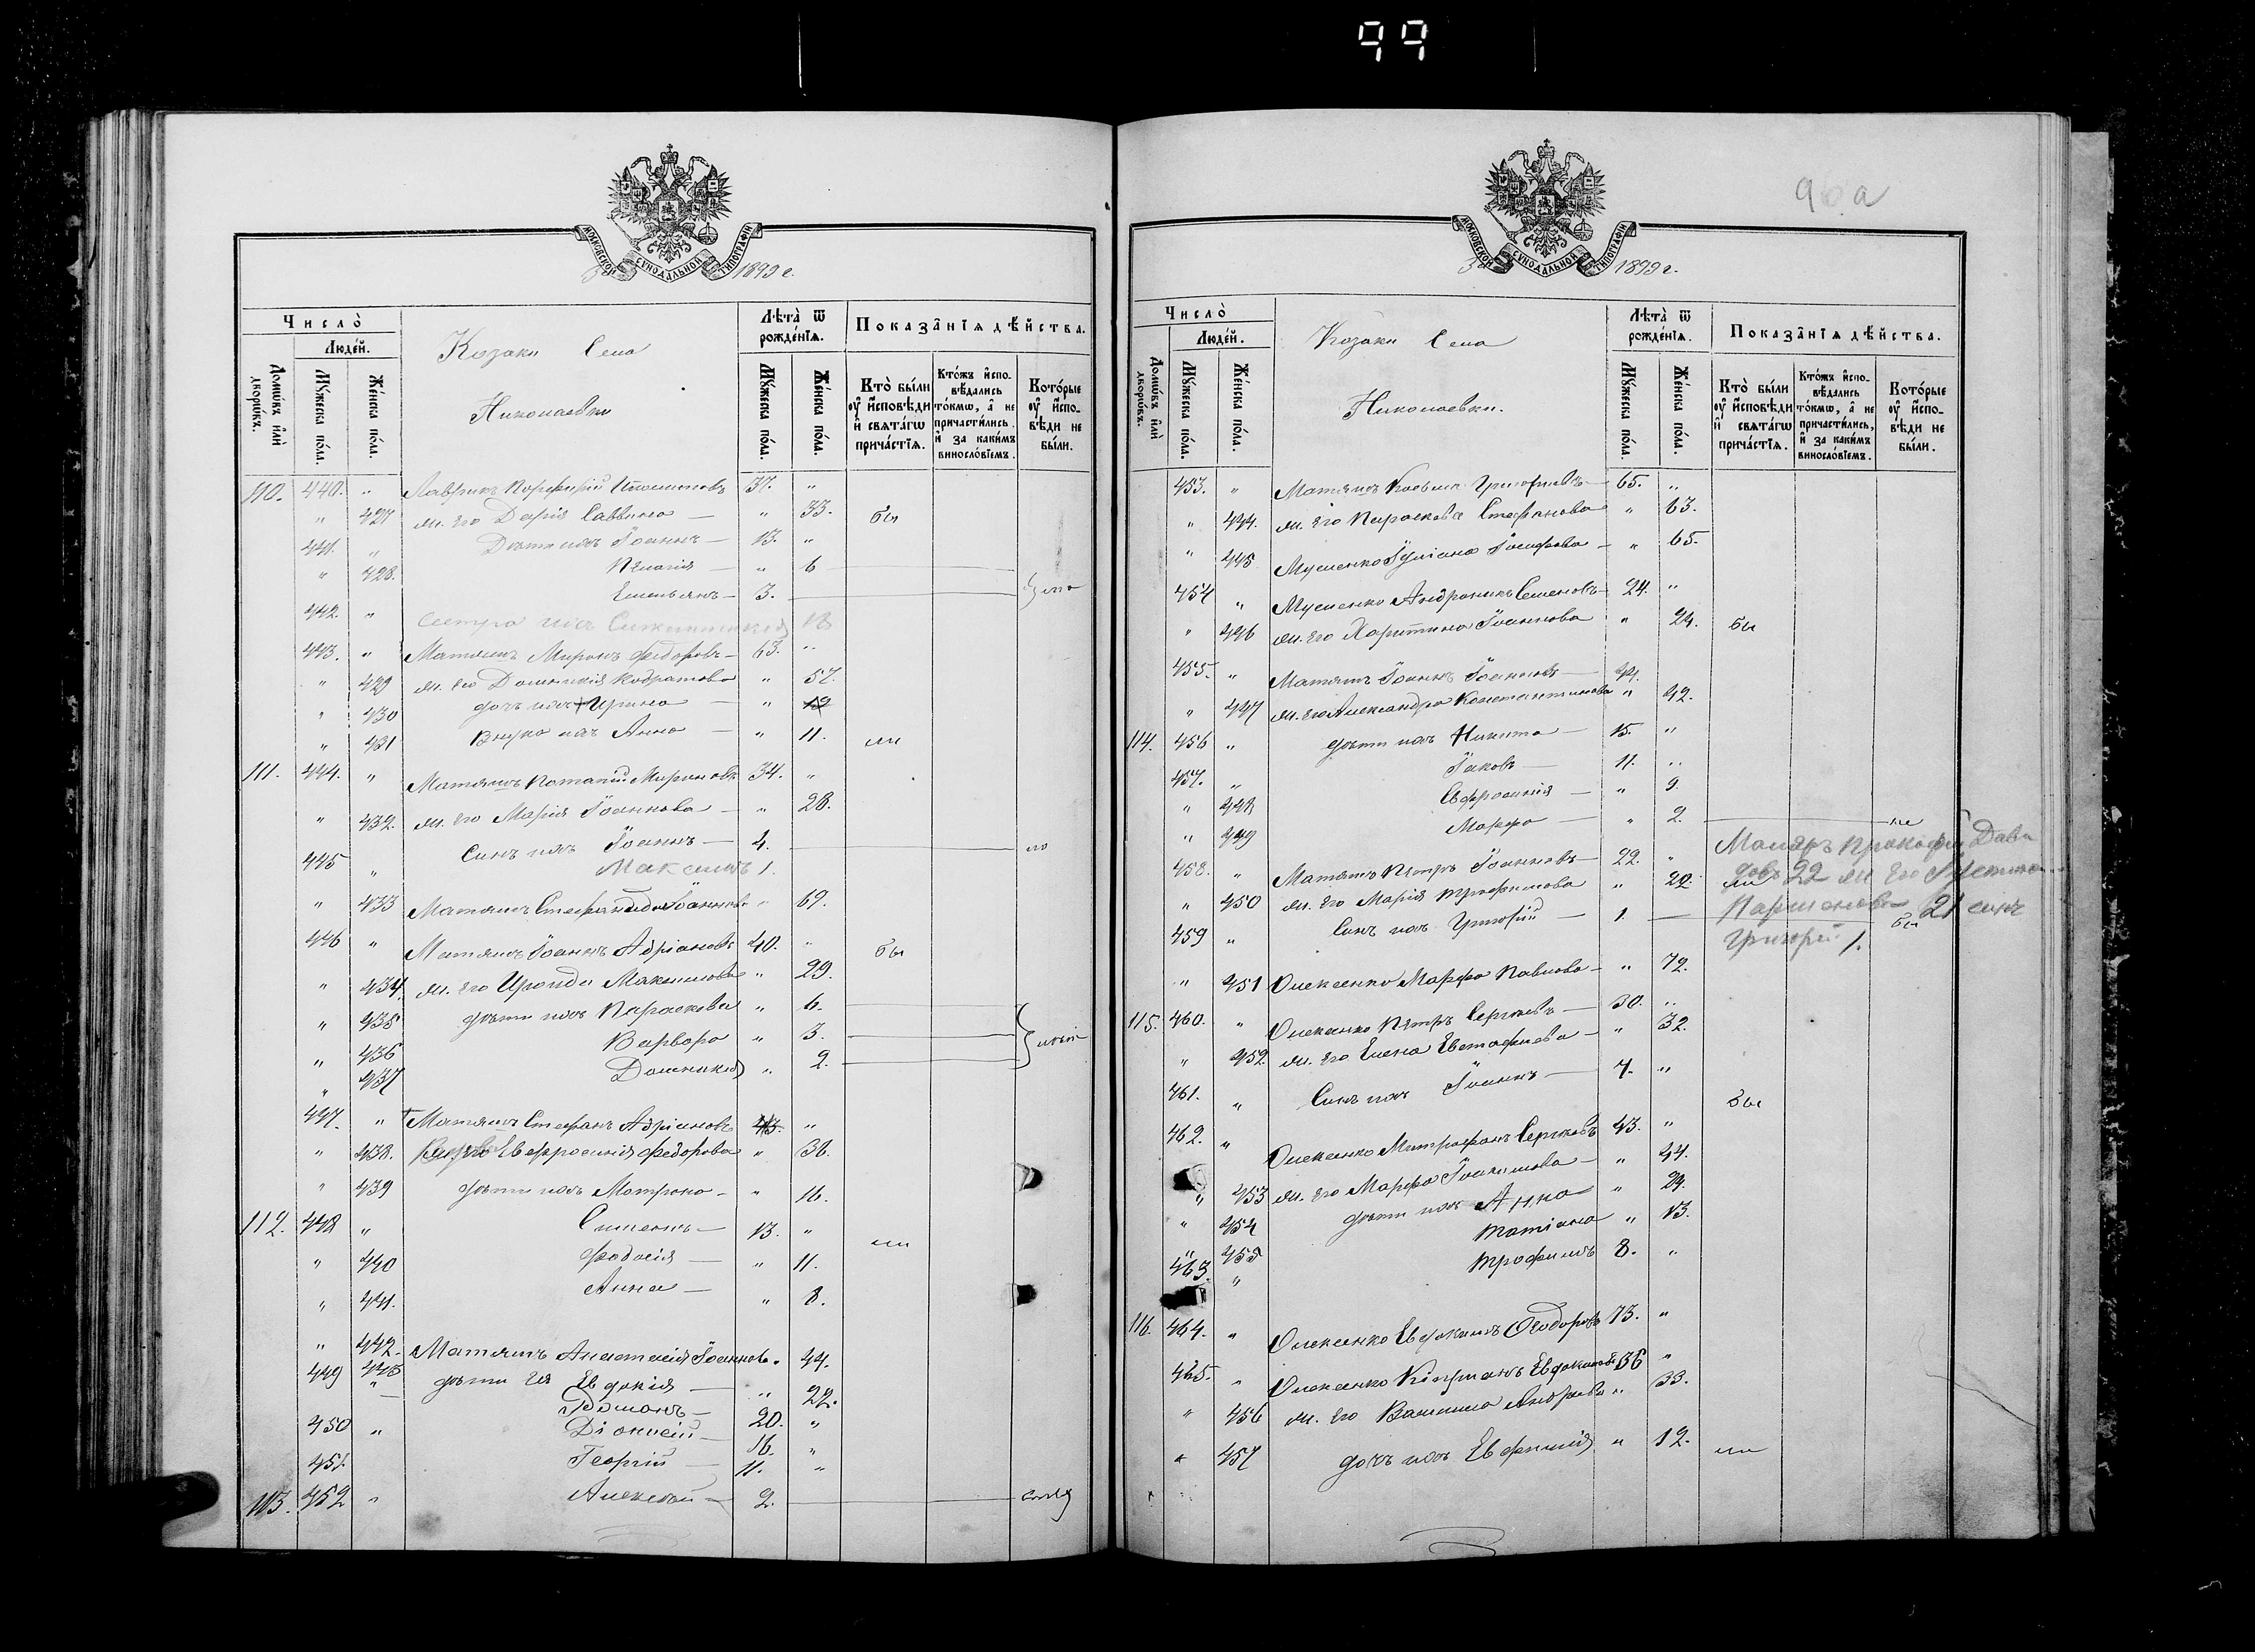 99
МОСКОВСКОЙ СѴНОДАЛЬНОЙ ТИПОГРАФІИ
1899 г.
Число̀
Люде́й.
Домѡ́въ и҆лѝ дворѡ́въ.
Мꙋ́жеска по́ла.
Же́нска по́ла.
Козаки Села
Николаевки
Лѣта̀ ѿ рожде́нїѧ.
Мꙋ́жеска по́ла.
Же́нска по́ла.
Показа̂нїѧ дѣ́йства.
Кто̀ бы́ли ᲂу҆ и҆сповѣ́ди и҆ свѧта́гѡ прича́стїѧ.
Кто́жъ и҆сповѣ́дались то́кмѡ, а҆ не причасти́лись, и҆ за каки́мъ винослові́емъ.
Кото́рые ᲂу҆ и҆сповѣ́ди не бы́ли.
110. 440. " Лаврикъ Порфирій 37. "
" 427 ж. его Дарія Саввина — " 33. бы
441. " Дѣти ихъ Іоаннъ — 13. "
" 428. Пелагія — " 6
Емельянъ — 3.
442. " сестра ихъ 18
443. " Матяшъ Миронъ Федоровъ — 63. "
" 429 ж. его Домникія Кодратова " 57.
" 430 дочь ихъ Ирина — " 19
" 431 Внука ихъ Анна — " 11. ли
111. 444. " Матяшъ Потапій Мироновъ 34. "
" 432. ж. его Марія Іоаннова — " 28.
445 " Сынъ ихъ Іоаннъ — 4.
Максимъ 1.
" 433 Матяшъ Стефанида Іоаннова " 69.
446 " Матяшъ Іоаннъ Адріановъ 40. " бы
" 434. ж. его Ираида Максимова " 29.
" 435 дѣти ихъ Параскева " 6.
" 436 Варвара " 3.
" 437 Домникія " 2.
447. " Матяшъ Стефанъ Адріановъ 43. "
" 438. Евфросинія Федорова " 38.
" 439 дѣти ихъ Матрона — " 16.
112. 448 " Симеонъ — 13. " ли
" 440 Феодосія — " 11.
" 441. Анна — " 8.
" 442. Матяшъ Анастасія Іоаннова " 44.
449 443 дѣти ея Евдокія — " 22.
Романъ — 20. "
450 " Діонисій — 16. "
451. Георгій — 11. "
113. 452 " Алексѣй — 2.
90 а
МОСКОВСКОЙ СѴНОДАЛЬНОЙ ТИПОГРАФІИ
1899 г.
Число̀
Люде́й.
Домѡ́въ и҆лѝ дворѡ́въ.
Мꙋ́жеска по́ла.
Же́нска по́ла.
Козаки Села
Николаевки.
Лѣта̀ ѿ рожде́нїѧ.
Мꙋ́жеска по́ла.
Же́нска по́ла.
Показа̂нїѧ дѣ́йства.
Кто̀ бы́ли ᲂу҆ и҆сповѣ́ди и҆ свѧта́гѡ прича́стїѧ.
Кто́жъ и҆сповѣ́дались то́кмѡ, а҆ не причасти́лись, и҆ за каки́мъ винослові́емъ.
Кото́рые ᲂу҆ и҆сповѣ́ди не бы́ли.
453. " Матяшъ Косьма Григорьевъ — 65. "
" 444. ж. его Параскева Стефанова " 63.
" 445 Мусіенко Іуліана Іосифова — " 65.
454 " Мусіенко Андроникъ Семеновъ 24. "
" 446 ж. его Харитина Іоаннова " 24. бы
455. " Матяшъ Іоаннъ Іоанновъ — 44.
" 447 ж. его Александра Константинова " 42.
114. 456 " дѣти ихъ Никита — 15. "
457. " Іаковъ — 11. "
" 448 Евфросинія — " 9.
" 449 Марфа — " 2.
458. " Матяшъ Петръ Іоанновъ — 22. "
" 450 ж. его Марія Трофимова " 20. ли
459 " Сынъ ихъ Григорій — 1. бы
Маляръ Прокофій Дави
довъ 22 ж. его
Парменова 21 сынъ
Григорій 1.
" 451 Олексенко Марфа Павлова — " 72.
115. 460. " Олексенко Петръ Сергіевъ — 30. "
" 452. ж. его Елена Евстафіева — " 32.
461. " Сынъ ихъ Іоаннъ — 7. "
бы
462. " Олексенко Митрофанъ Сергіевъ 43. "
" 453 ж. его Марфа Іоакимова — " 44.
" 454 дѣти ихъ Анна " 24.
" 455 Татіана " 13.
463. " Трофимъ 8. "
116. 464. " Олексенко Евфимъ Ѳеодоровъ 73. "
465. " Олексенко Кипріанъ 36 "
" 456 ж. его Васили́са Андреева " 33.
" 457 дочь ихъ Евфимія " 12. ли